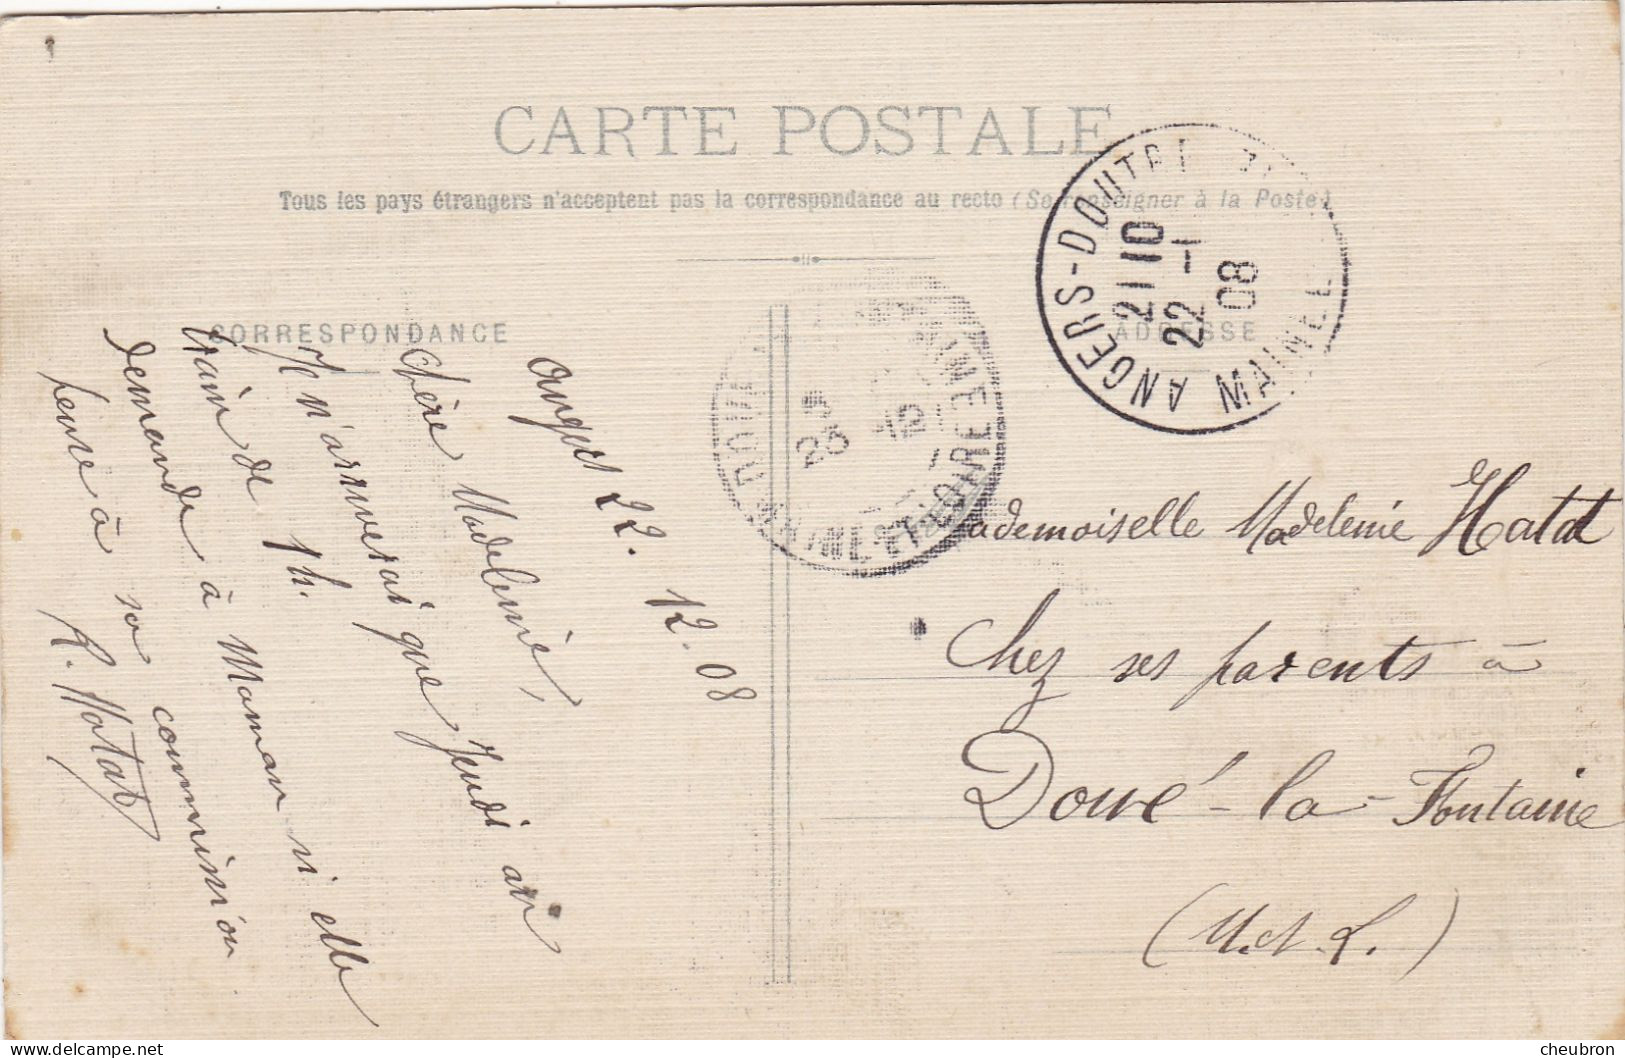 CARTE POSTALE
Tous les pays étrangers n'acceptent pas la correspondance au recto (Se renseigner à la Poste)
CORRESPONDANCE
ADRESSE
ANGERS-DOUTRE
MAINE
21 10
22 -1
08
DOUÉ
MAINE ET LOIRE
23 12
Angers 22. 12. 08
Chère Madeleine,
Je n'arriverai que Jeudi au
train de 1h.
Demande à Maman si elle
pense à sa commission
R. Hatat
Mademoiselle Madeleine Hatat
Chez ses parents à
Doué-la-Fontaine
(M. et L.)
cheubron@delcampe.net